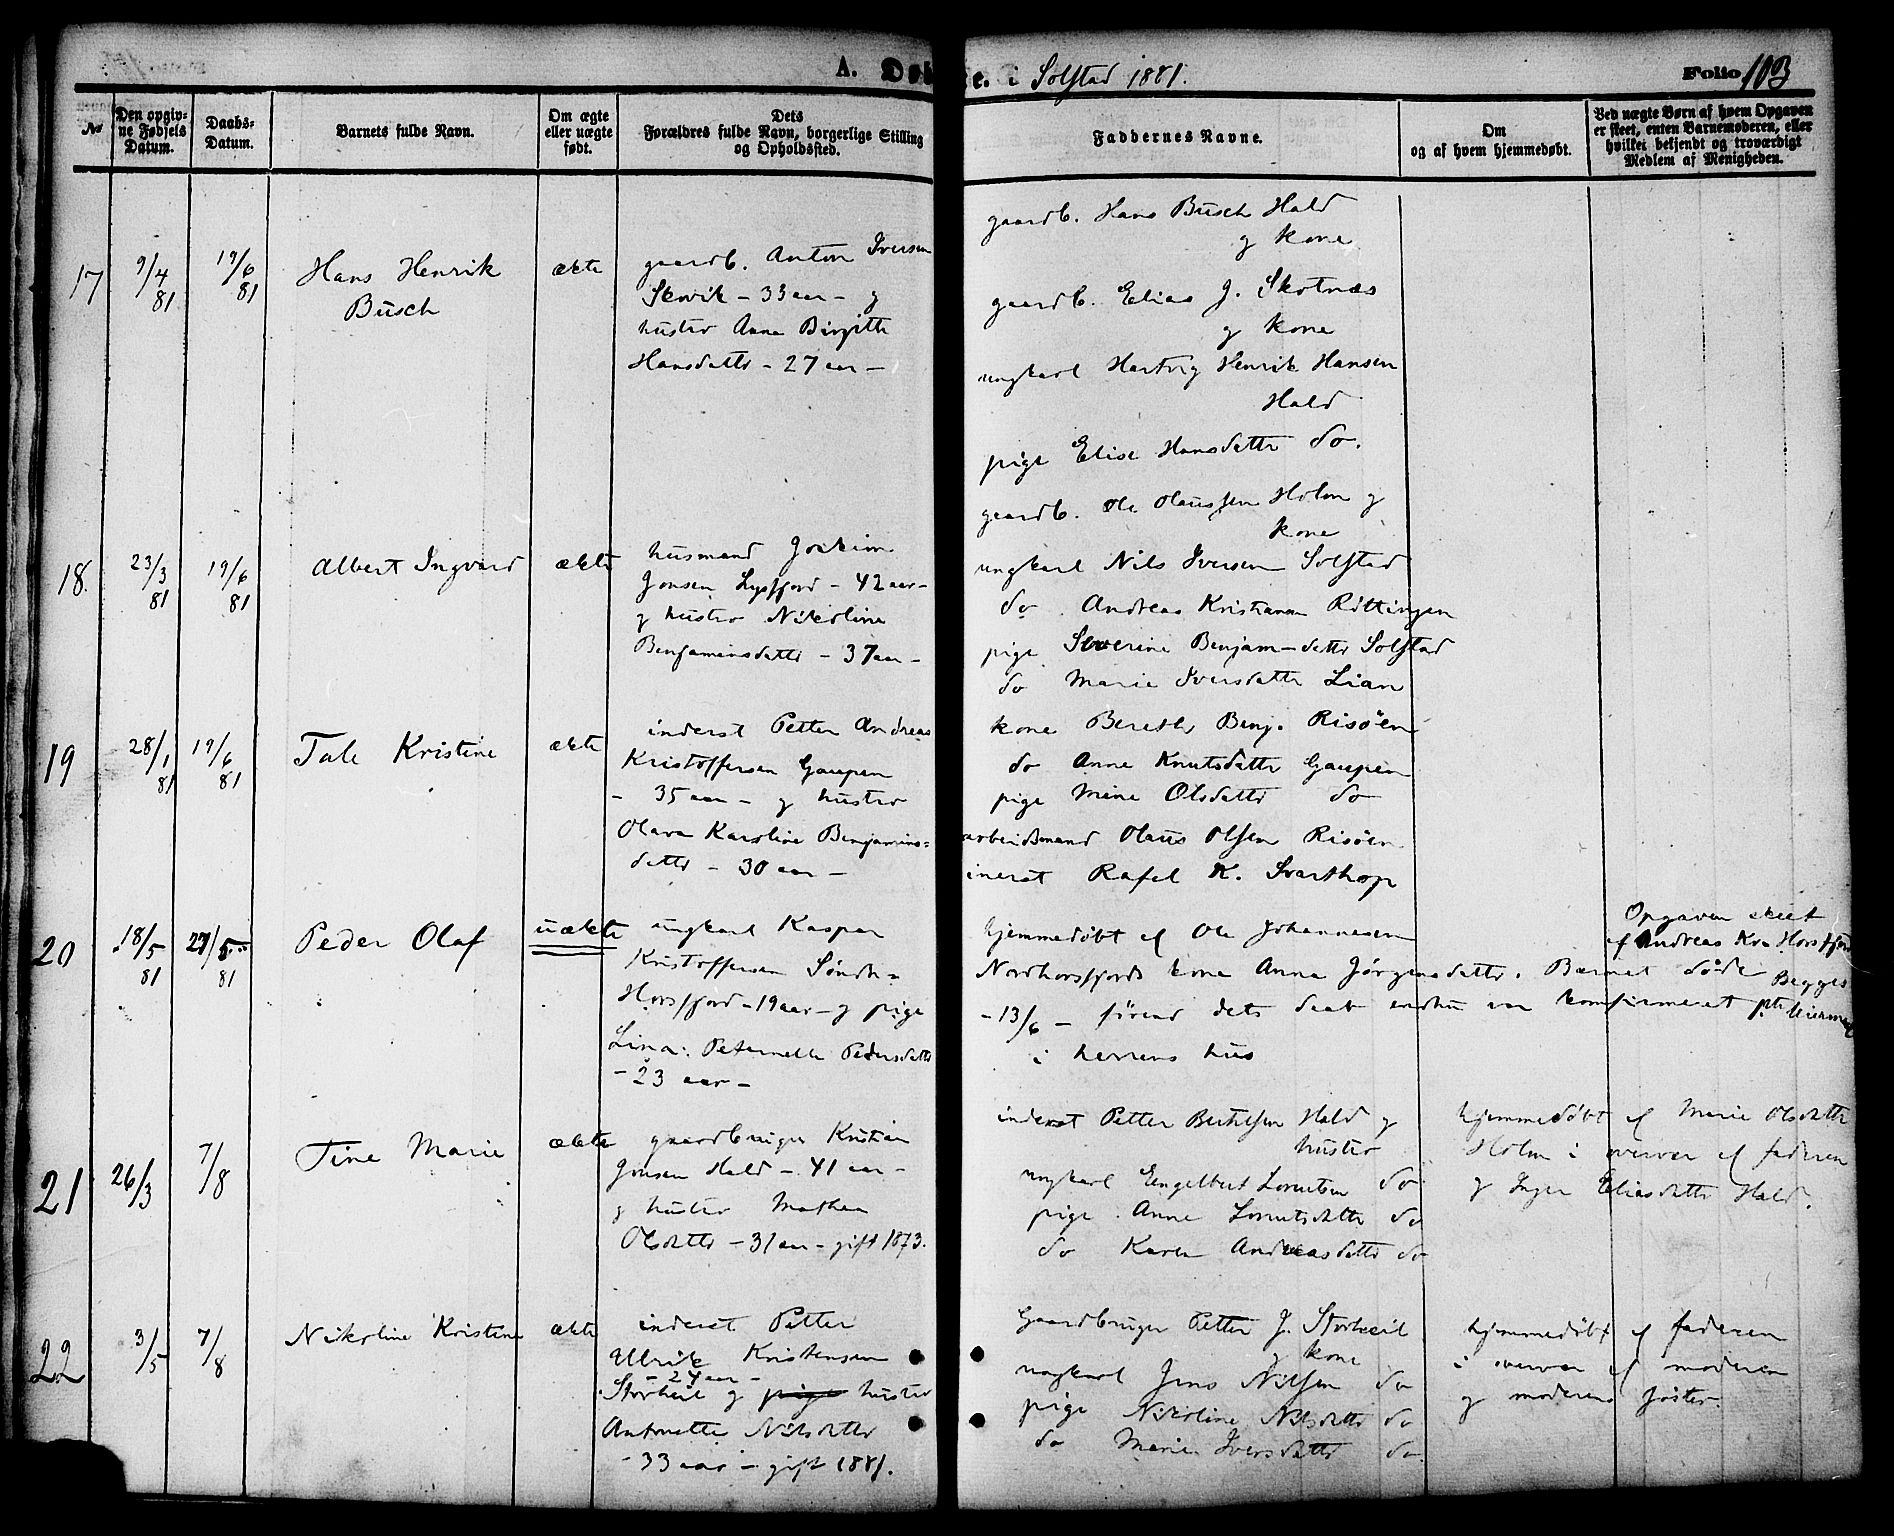 A. Døbte. i Solstad 1881.
Folio 103
No
Den opgivne Fødsels Datum.
Daabs-Datum.
Barnets fulde Navn.
Om ægte eller uægte født.
Dets Forældres fulde Navn, borgerlige Stilling og Opholdssted.
Faddernes Navne.
Om og af hvem hjemmedøbt.
Ved uægte Børn af hvem Opgaven er skeet, enten Barnemoderen, eller hvilket bekjendt og troværdigt Medlem af Menigheden.
17
9/4 81
19/6 81
Hans Henrik
Busch
ækte
gaardb. Anton Iversen
- 33 aar - g
hustro Anna Birgitte
Hansdatter - 27 aar -
gaardb. Hans Busch Hald
g kone
gaardb. Elias J. Skotnæs
g kone
ungkarl Hartvig Henrik Hansen
Hald
pige Elise Hansdatter do.
gaardb. Ole Olaussen Holm g
kone
18.
23/3 81
19/6 81
Albert Ingvard
ækte
husmand Joakim
Jonsen Lysfjord - 42 aar -
g hustro Nikoline
Benjaminsdatter - 37 aar -
ungkarl Nils Iversen Solstad
do Andreas Kristiansen
pige Severine Benjam-datter Solstad
do Marie Iversdatter Lian
19
28/1 81
19/6 81
Tale Kristine
ækte
inderst Petter Andreas
Kristoffersen Gaupen
- 35 aar - g hustro
Olava Karoline Benjamins=
datter - 30 aar -
kone Bereth Benj. Risøen
do Anne Knutsdatter Gaupen
pige Mine Olsdatter do
arbeidsmand Olaus Olsen Risøen
inerst Rafel K. Svarthop
20
18/5 81
27/5 81
Peder Olaf
uækte
ungkarl Kaspar
Kristoffersen Søndr=
Horsfjord - 19 aar - g pige
Lina: Peternelle Pedersdatter
- 23 aar -
hjemmedøbt af Ole Johannesen
Nordhorsfjords kone Anna Jørgensdatter. Barnet døde
- 13/6 - førend dets daab endnu var komfirmeret
i herrens hus
Opgaven skeet
af Andreas Kr. Horsfjord
Begges
21
26/3
7/8
Tine Marie
ækte
gaardbruger Kristian
Jonsen Hald - 41 aar -
g hustro Mathea
Olsdatter - 31 aar - gift 1873.
inderst Petter Hald g
hustro
ungkarl Engelbert Lorntsen do
pige Anne Lorntsdatter do
do Karen Andreasdatter do
hjemmedøbt af Marie Olsdatter
Holm i overvær af faderen
g Inger Eliasdatter Hald.
22
3/5
7/8
Nikoline Kristine
ækte
inderst Petter
Ullrik Kristensen
- 24 aar -
Storheil g pige hustro
Antonette Nilsdatter
- 33 aar - gift 1881.
Gaardbruger Petter J. Storheil
g kone
ungkarl Jens Nilsen do
pige Nikoline Nilsdatter do
do Marie Iversdatter do
hjemmedøbt af faderen
i overvær af moderen
g moderens søster.